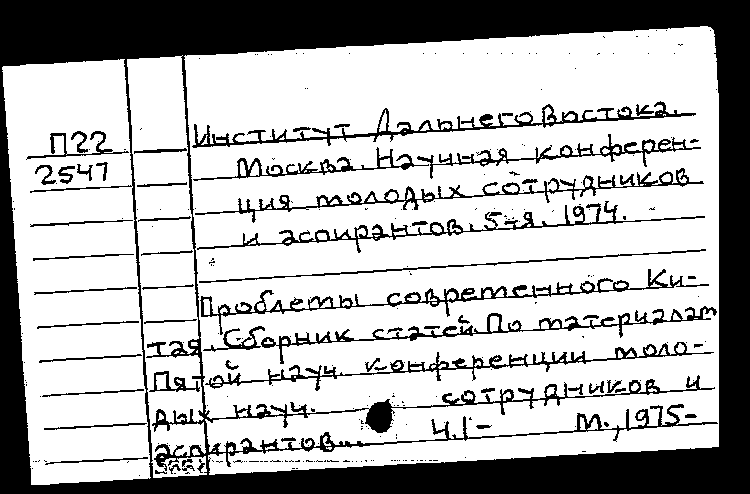 П22
2547
Институт Дальнего Востока.
Москва. Научная конферен-
ция молодых сотрудников
и аспирантов. 5-я. 1974.
Проблемы современного Ки-
тая. Сборник статей По материалам
Пятой науч. конференции моло-
дых науч. сотрудников и
аспирантов... Ч.1- М., 1975-